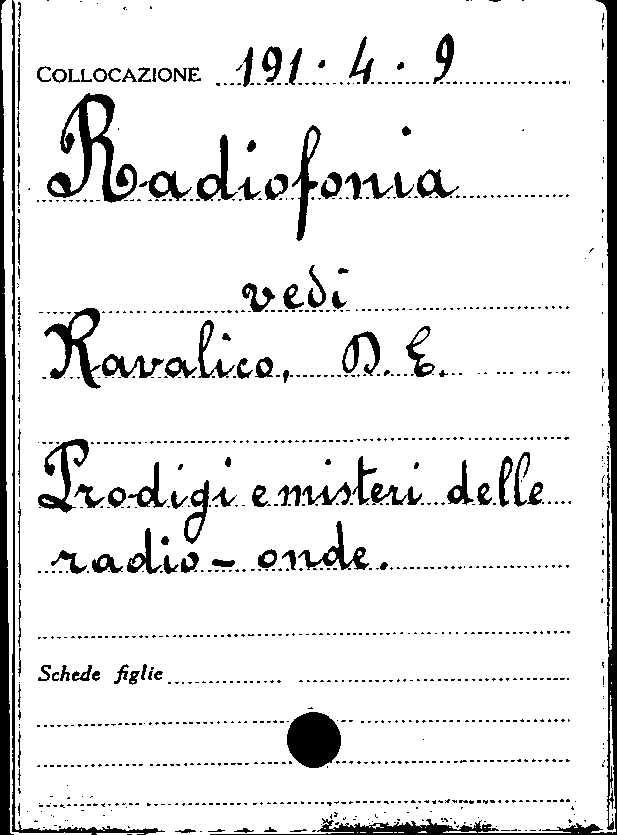 COLLOCAZIONE 191 · 4 · 9
Radiofonia
vedi
Ravalico, D. E.
Prodigi e misteri delle
radio - onde.
Schede figlie